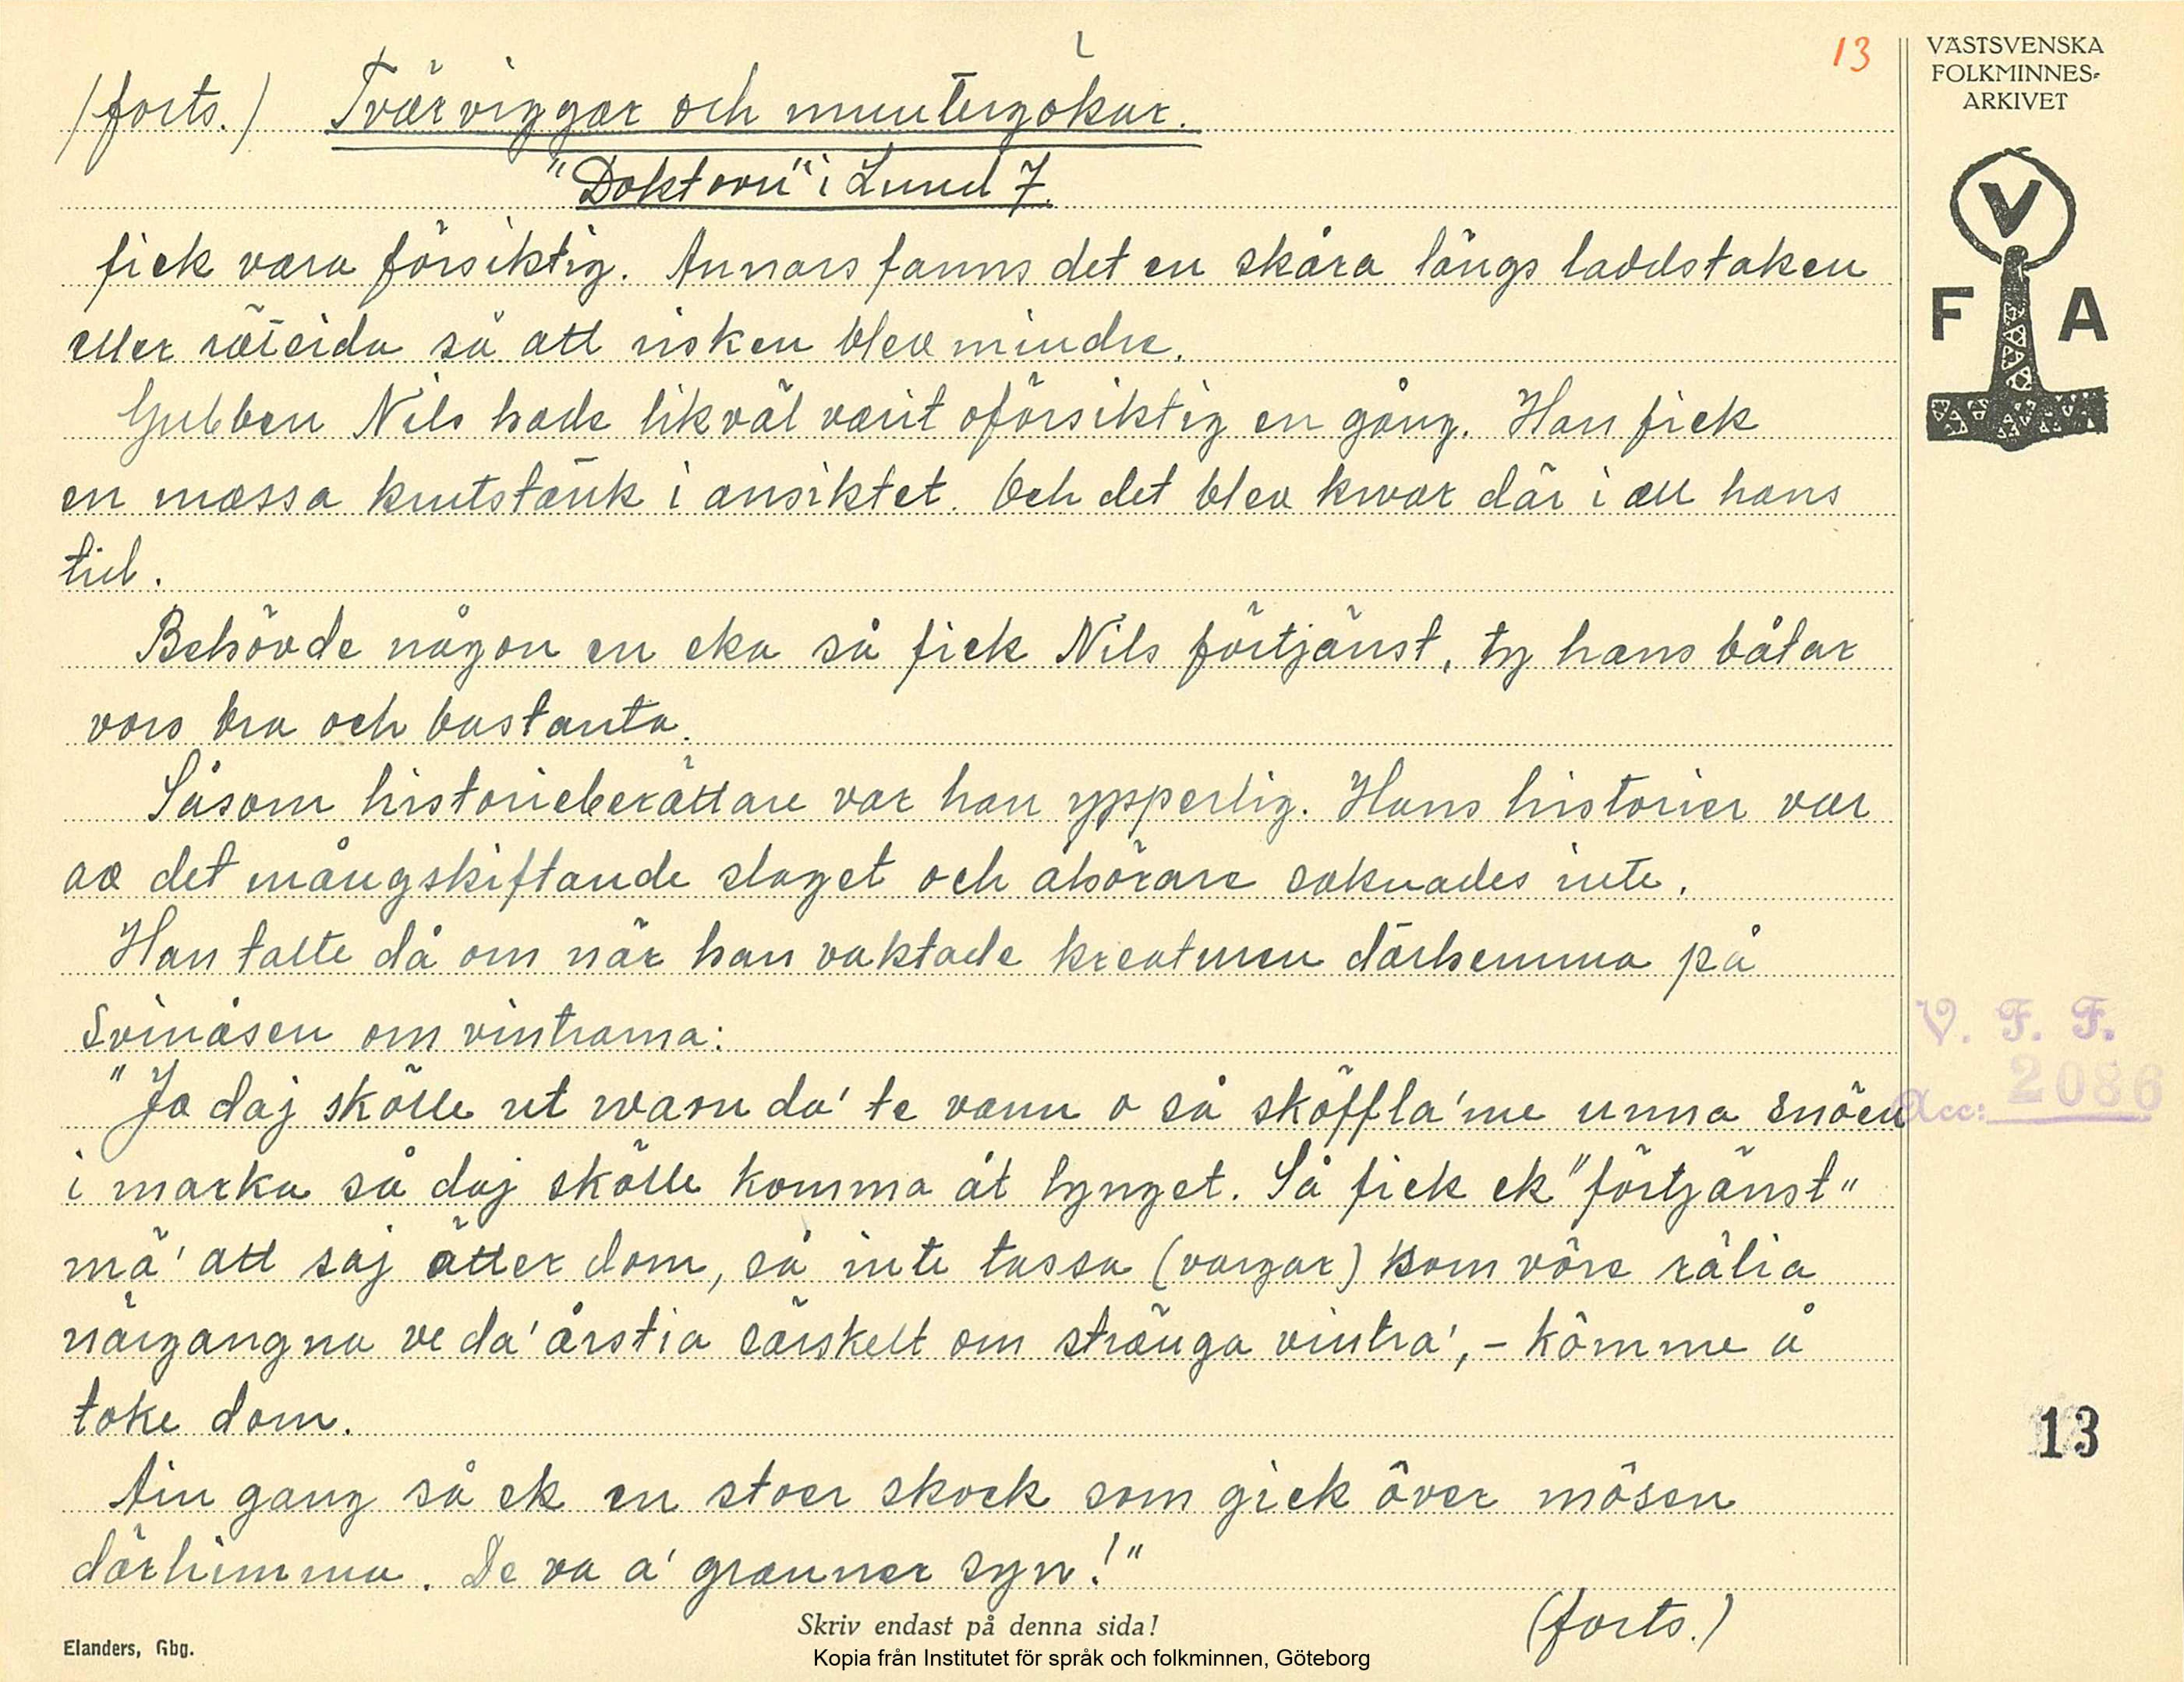 13
VÄSTSVENSKA
FOLKMINNES-
ARKIVET
/forts./ Tvärviggar och muntergökar.
"Doktorn" i Lund 7.
fick vara försiktig. Annars fanns det en skåra längs laddstaken
eller så att risken blev mindre.
Gubben Nils hade likväl varit oförsiktig en gång. Han fick
en massa krutstänk i ansiktet. Och det blev kvar där i all hans
tid.
Behövde någon en eka så fick Nils förtjänst, ty hans båtar
vors bra och bastanta.
Såsom historieberättare var han ypperlig. Hans historier var
av det mångskiftande slaget och åhörare saknades inte.
Han talte då om när han vaktade kreaturen därhemma på
Svinåsen om vintrarna:
"Ja daj skölle ut warn da' te vann o så sköffla' me unna snöen
i marka så daj skölle komma åt lynget. Så fick ek "förtjänst"
mä' att saj ätter dom, så inte tassa (vargar) som vöre rälia
närgangna ve da' årstia särskelt om stränga vintra', - kömme å
toke dom.
Ain gang så ek en stoer skock som gick över mösen
därhimma. De va a' granner syn!"
(forts.)
V F A
V. F. F.
Acc: 2086
13
Skriv endast på denna sida!
Elanders, Gbg.
Kopia från Institutet för språk och folkminnen, Göteborg